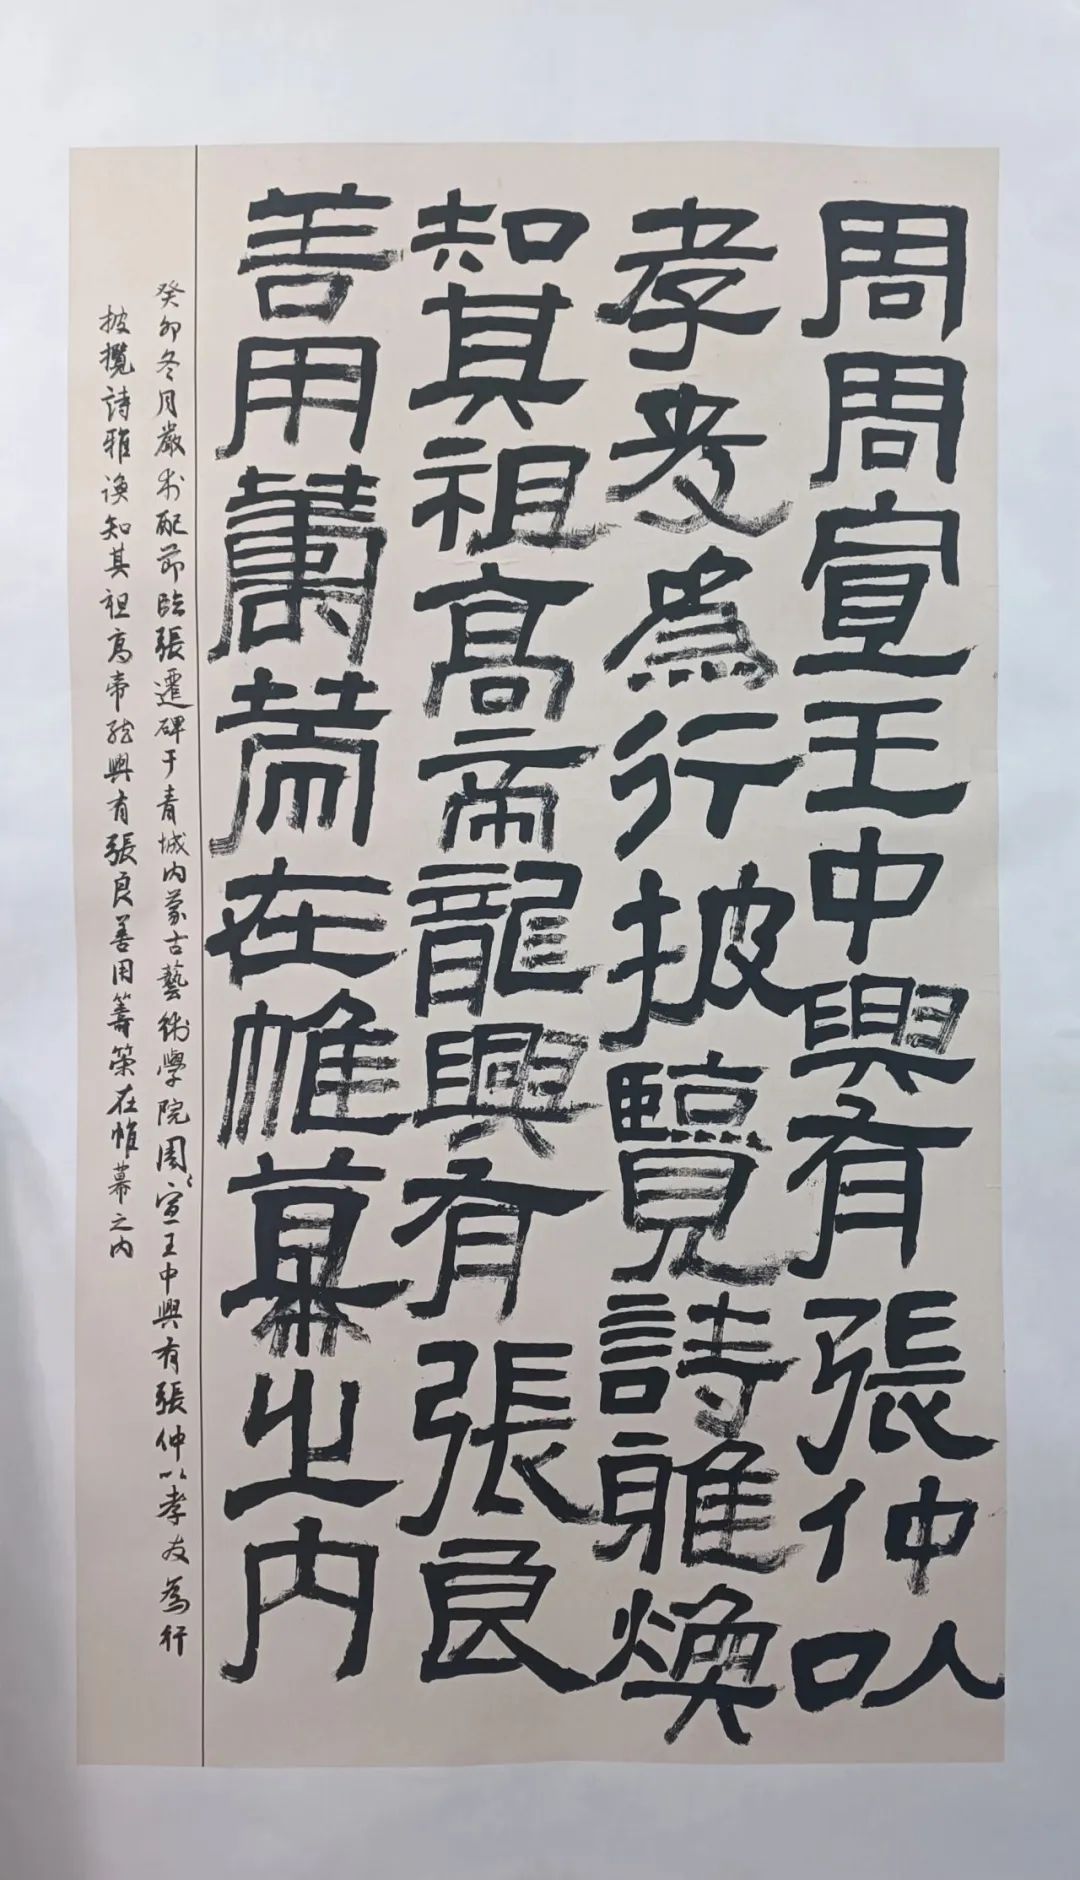 周周宣王中興有張仲以
孝友為行披覽詩雅煥
知其祖高帝龍興有張良
善用籌策在帷幕之内
癸卯冬月嚴彬配節臨張遷碑于青城内蒙古藝術學院周〻宣王中興有張仲以孝友為行
披攬詩雅渙知其祖高帝龍興有張良善用籌策在帷幕之内